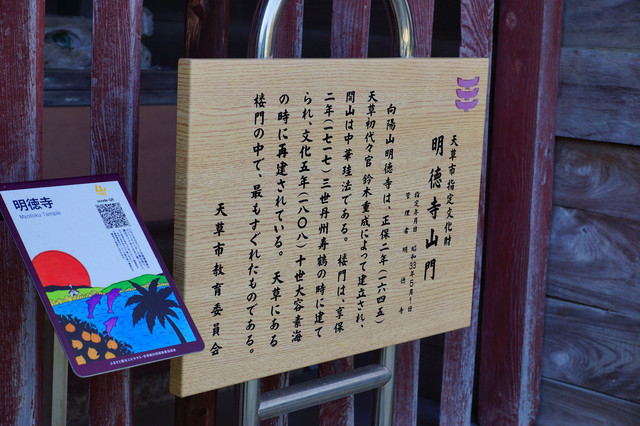 天草市指定文化財
明徳寺山門
指定年月日 昭和33年5月1日
管理者 明徳寺
向陽山明徳寺は、正保二年（一六四五）
天草初代々官 鈴木重成によって建立され、
開山は中華珪法である。楼門は、享保
二年（一七一七）三世丹州寿鶴の時に建て
られ、文化五年（一八〇八）十世大容素海
の時に再建されている。 天草にある
楼門の中で、最もすぐれたものである。
天草市教育委員会
明徳寺
Myotoku Temple